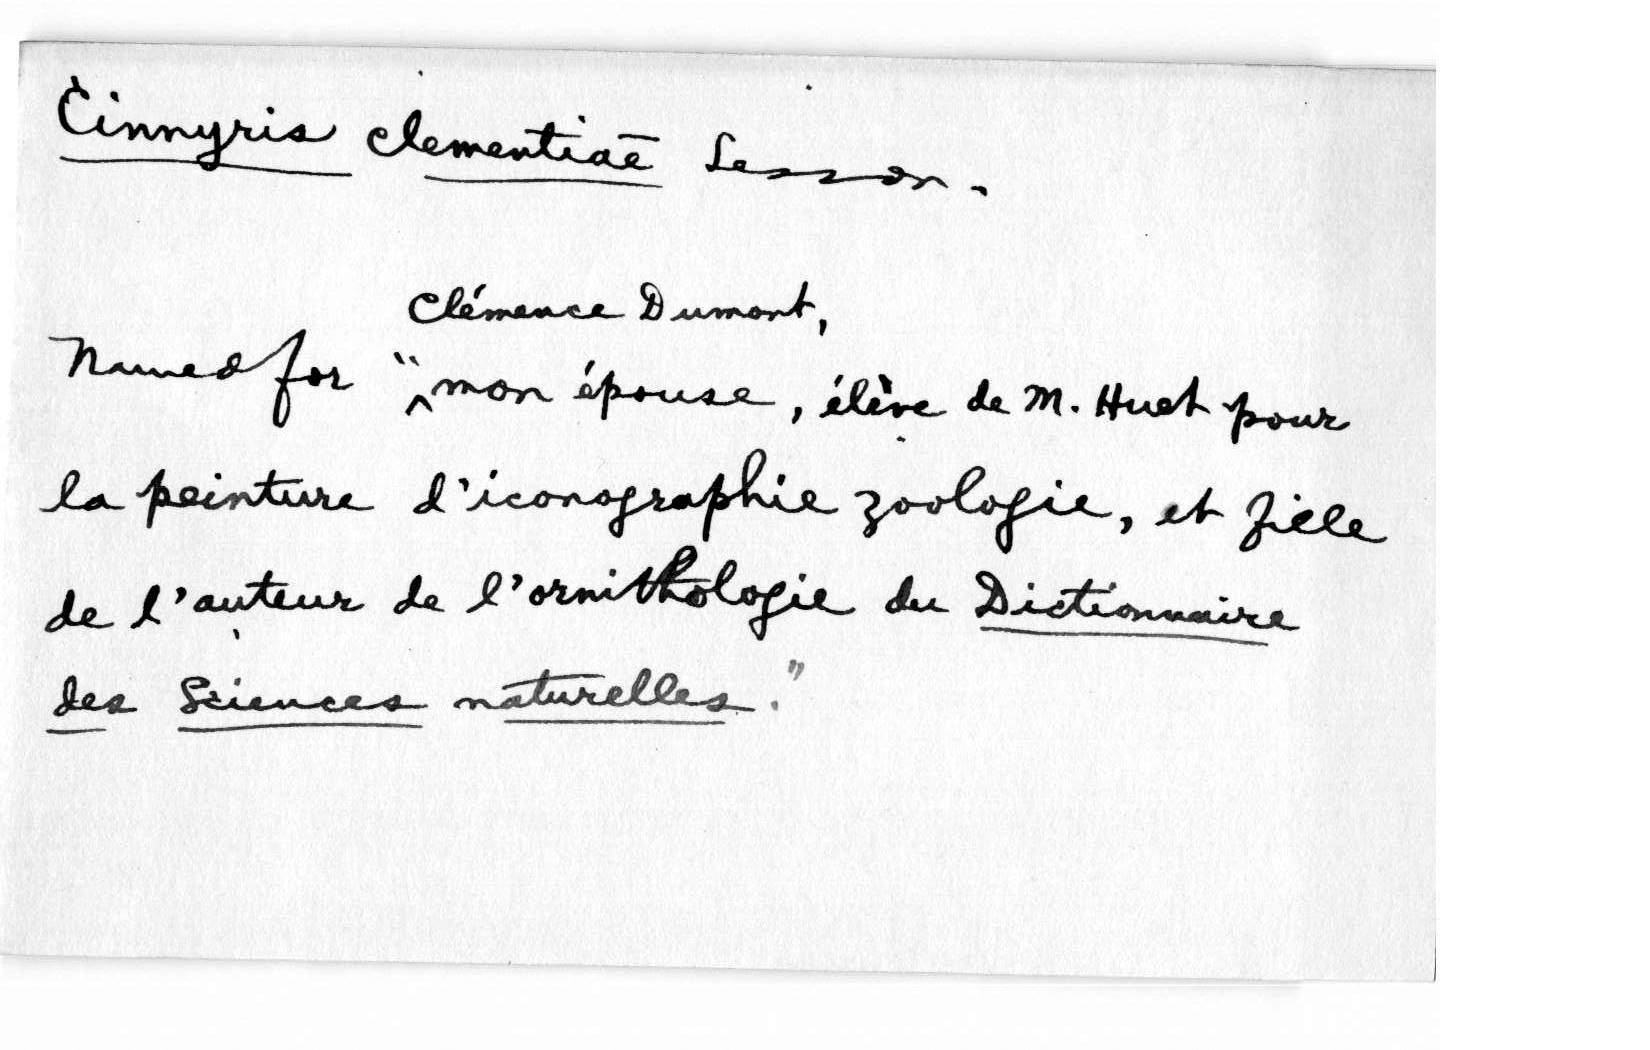 Cinnyris clementiae Lesson.
Clémence Dumont,
Named for "^mon épouse, élève de M. Huet pour
la peinture d'iconographie zoologie, et fille
de l'auteur de l'ornithologie du Dictionnaire
des Sciences naturelles."